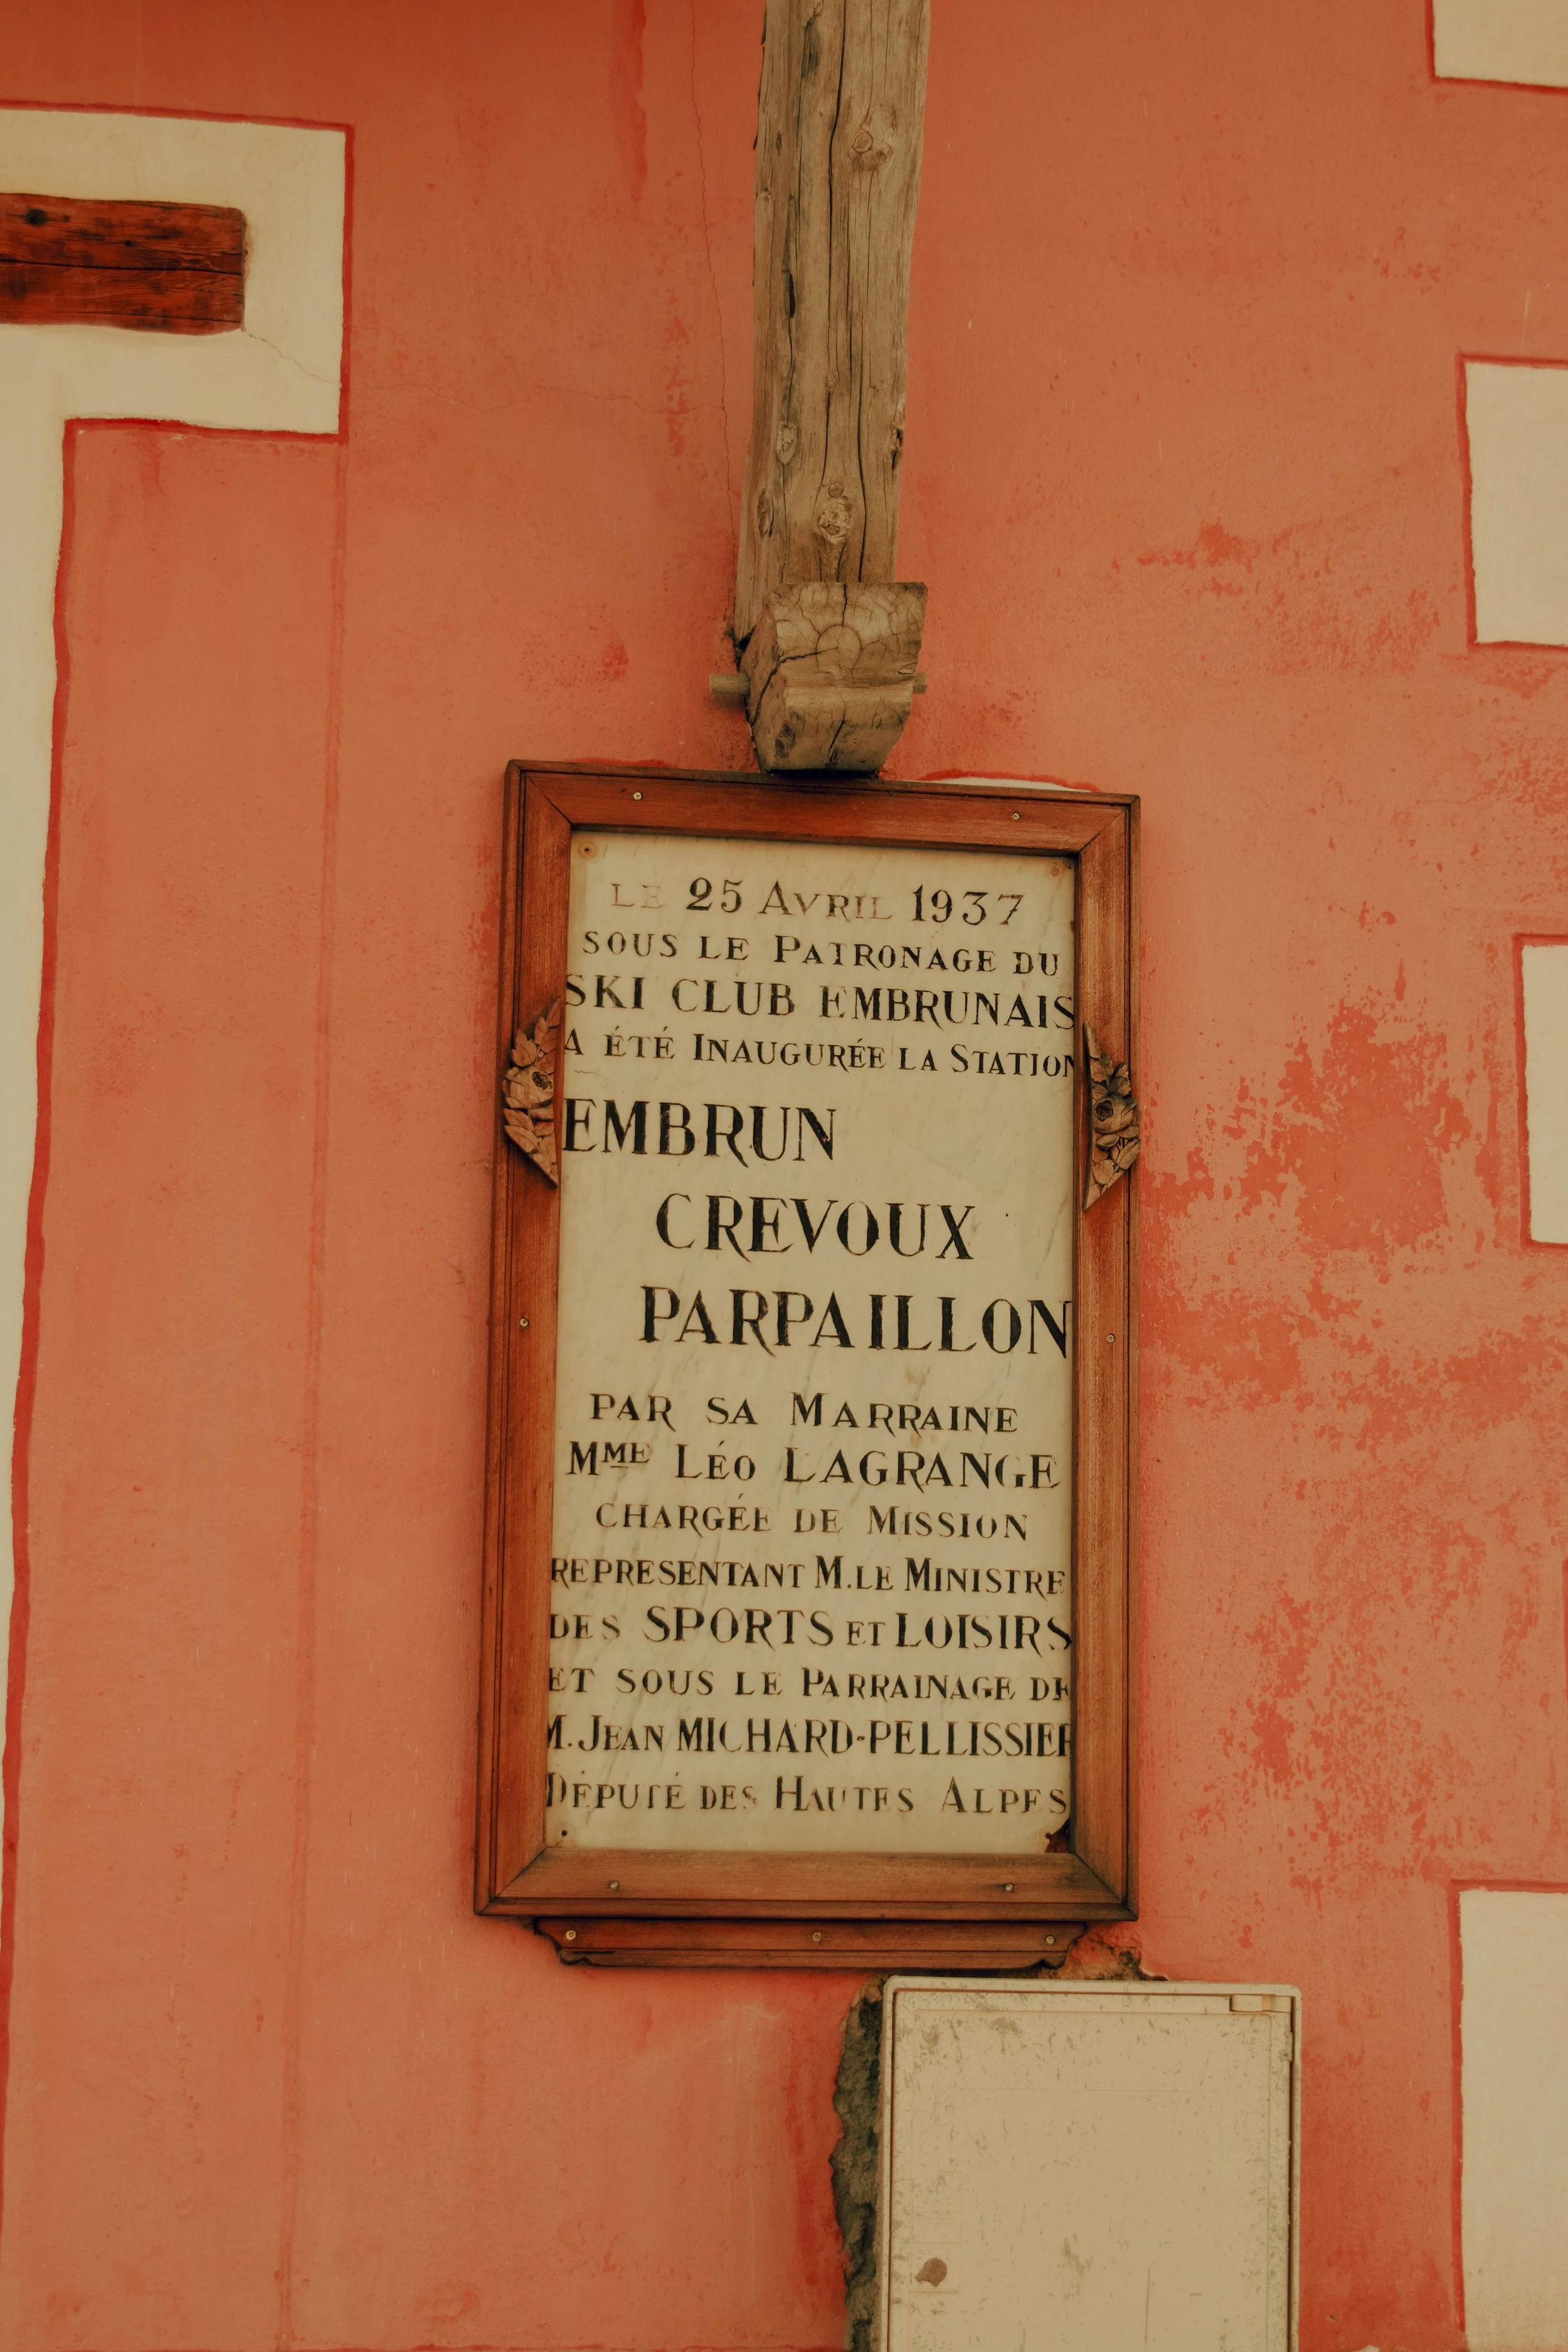 LE 25 AVRIL 1937
SOUS LE PATRONAGE DU
SKI CLUB EMBRUNAIS
A ÉTÉ INAUGURÉE LA STATION
EMBRUN
CREVOUX
PARPAILLON
PAR SA MARRAINE
MME LÉO LAGRANGE
CHARGÉE DE MISSION
REPRESENTANT M.LE MINISTRE
DES SPORTS ET LOISIRS
ET SOUS LE PARRAINAGE DE
M. JEAN MICHARD-PELLISSIER
DÉPUTÉ DES HAUTES ALPES